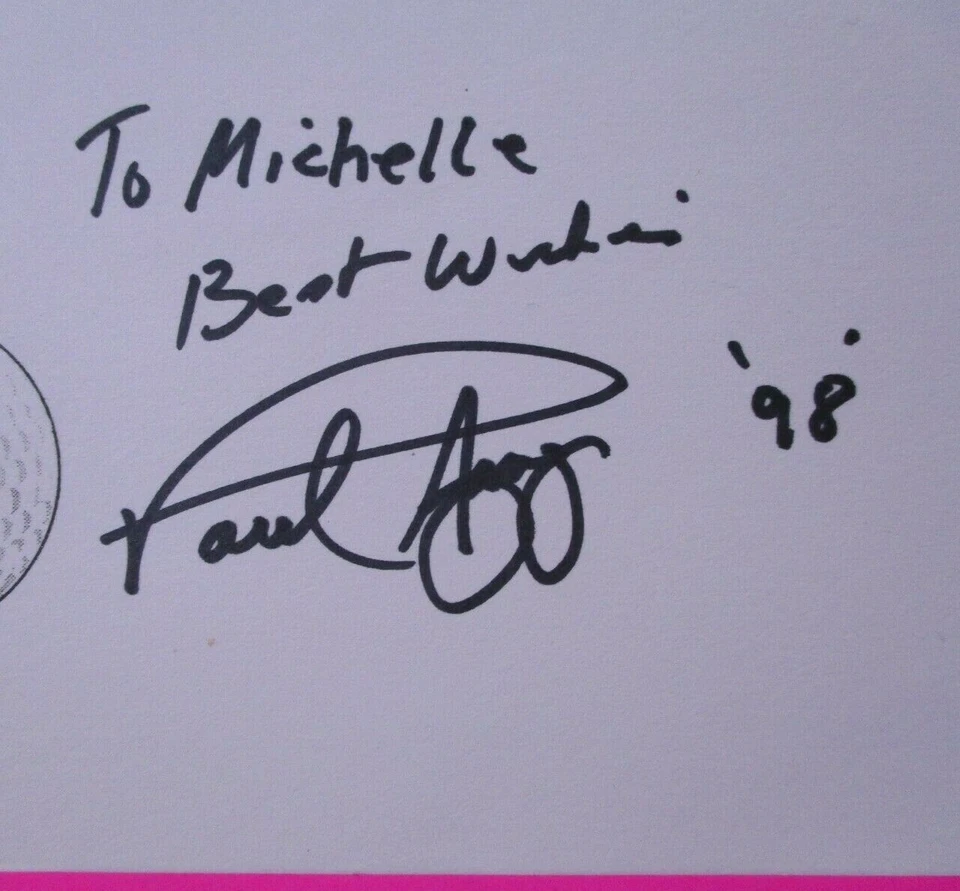 To Michelle
Best Wishes
Paul '98'